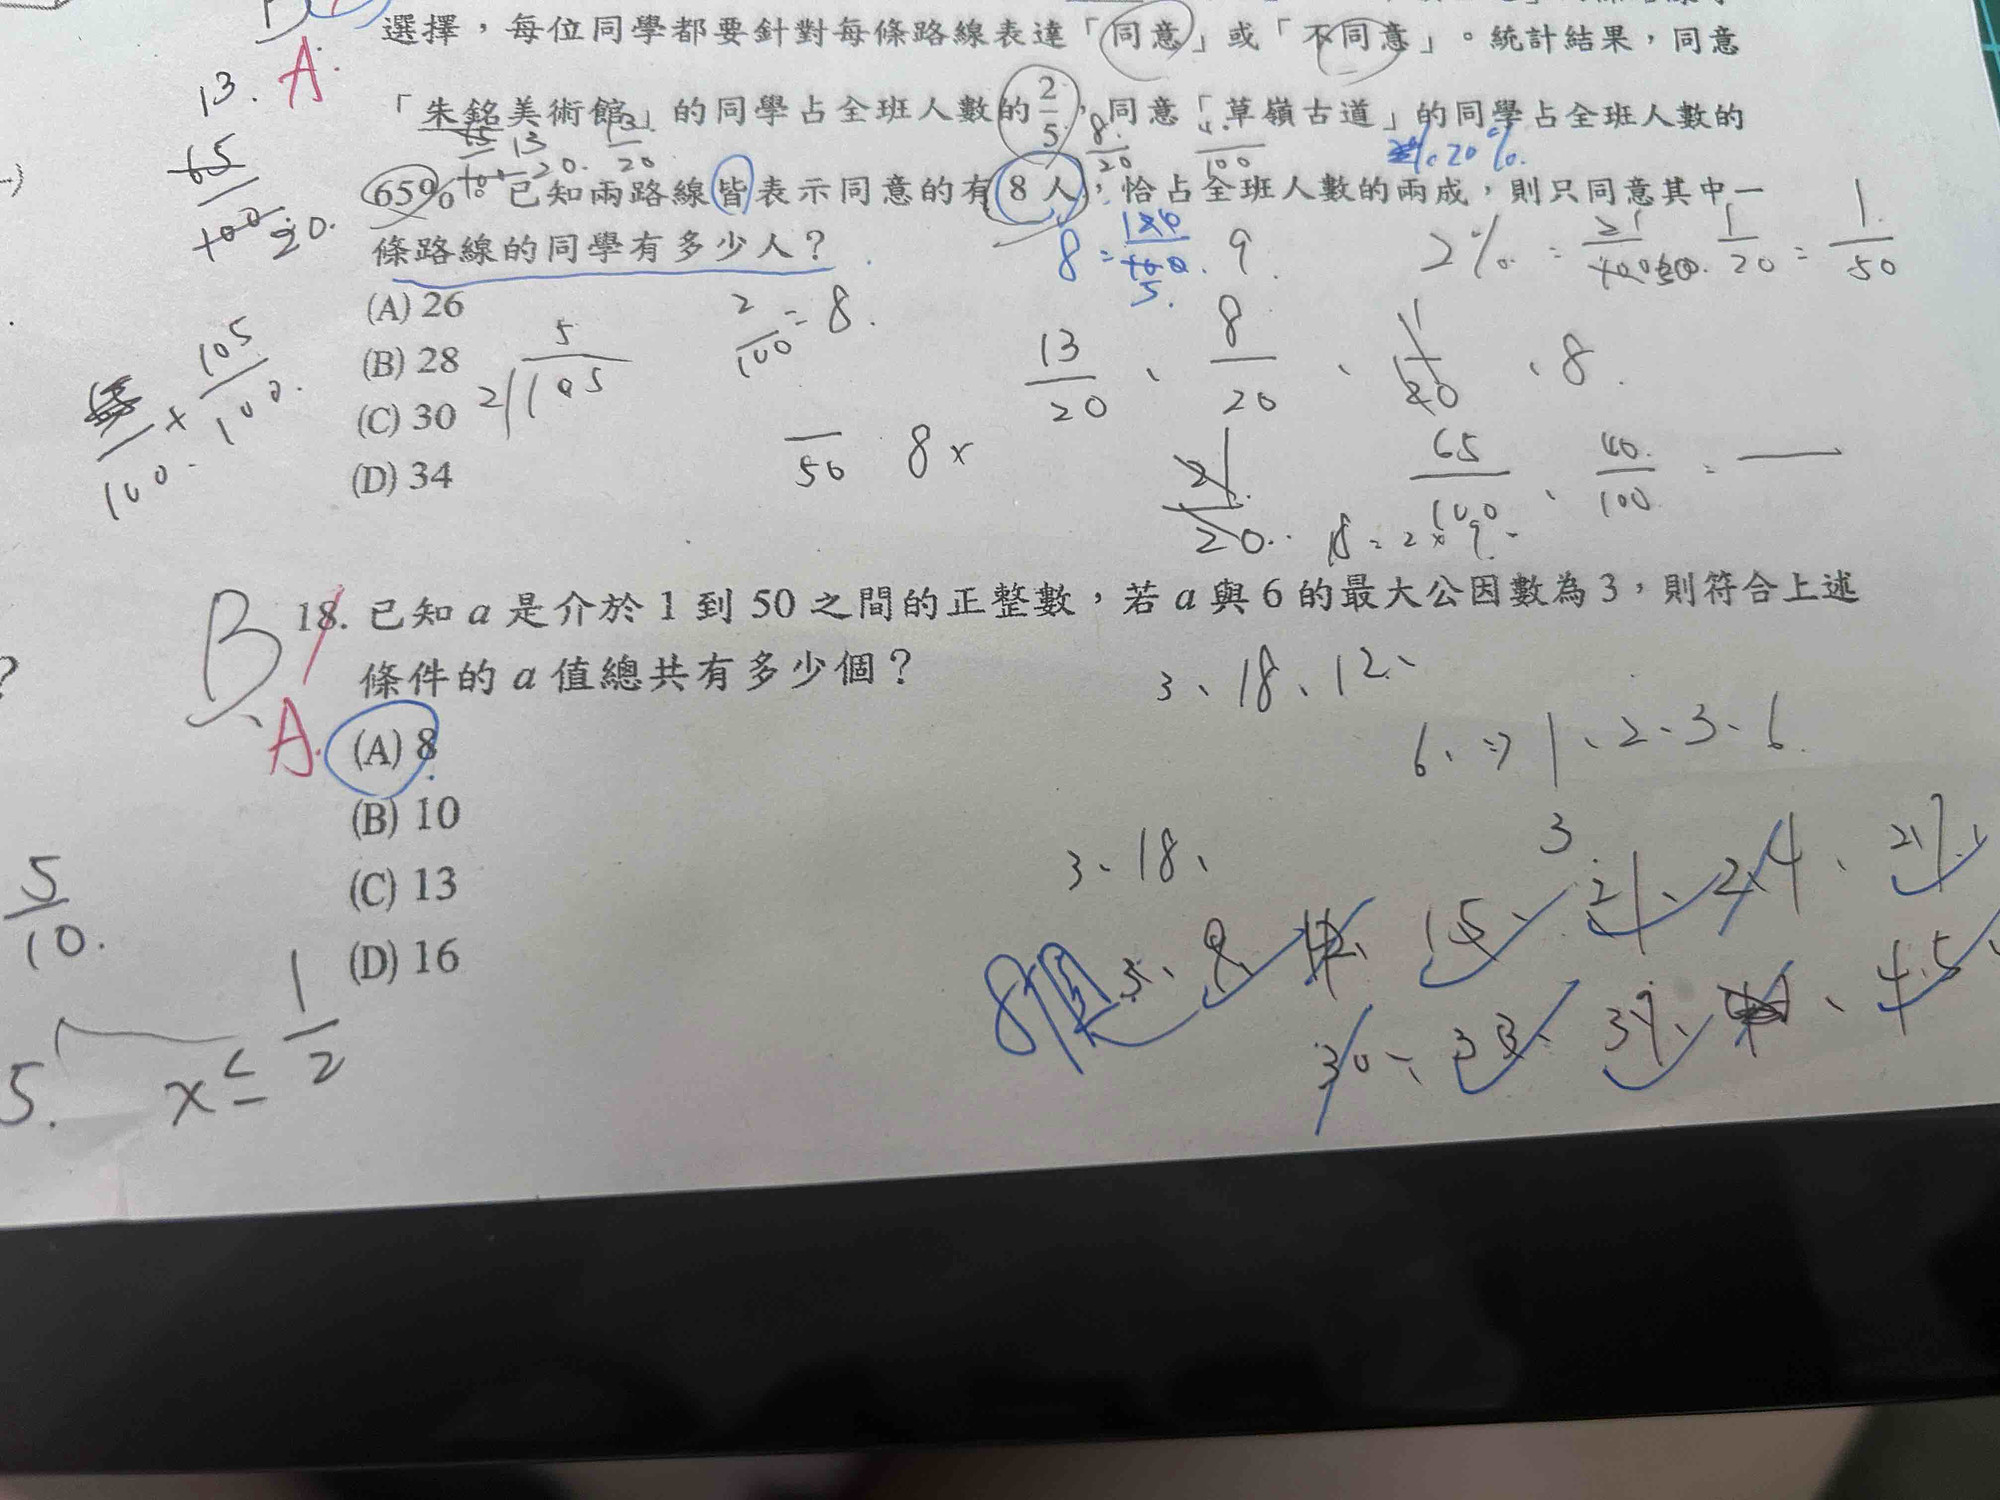 選擇，每位同學都要針對每條路線表達「同意」或「不同意」。統計結果，同意
13. A.
「朱銘美術館」的同學占全班人數的2/5，同意「草嶺古道」的同學占全班人數的
65/100 20.
13/20
8/20
20%.
65%。已知兩路線皆表示同意的有8人，恰占全班人數的兩成，則只同意其中一
條路線的同學有多少人？
8=
9
2% =
1/20 = 1/50
(A) 26
2/100 = 8.
(B) 28
105/100.
5
2 105
13/20、8/20、
、8.
(C) 30
50 8×
65/100、40/100
(D) 34
21/20..
18 = 2×9
B
18. 已知 a 是介於 1 到 50 之間的正整數，若 a 與 6 的最大公因數為 3，則符合上述
條件的 a 值總共有多少個？
3、18、12、
A.
(A) 8
6、⇒1、2、3、6.
(B) 10
3、18、
3.
(C) 13
5/10.
8個
3、9、12、15、21、24、27、
(D) 16
30、33、39、45、
5.
x ≤ 1/2